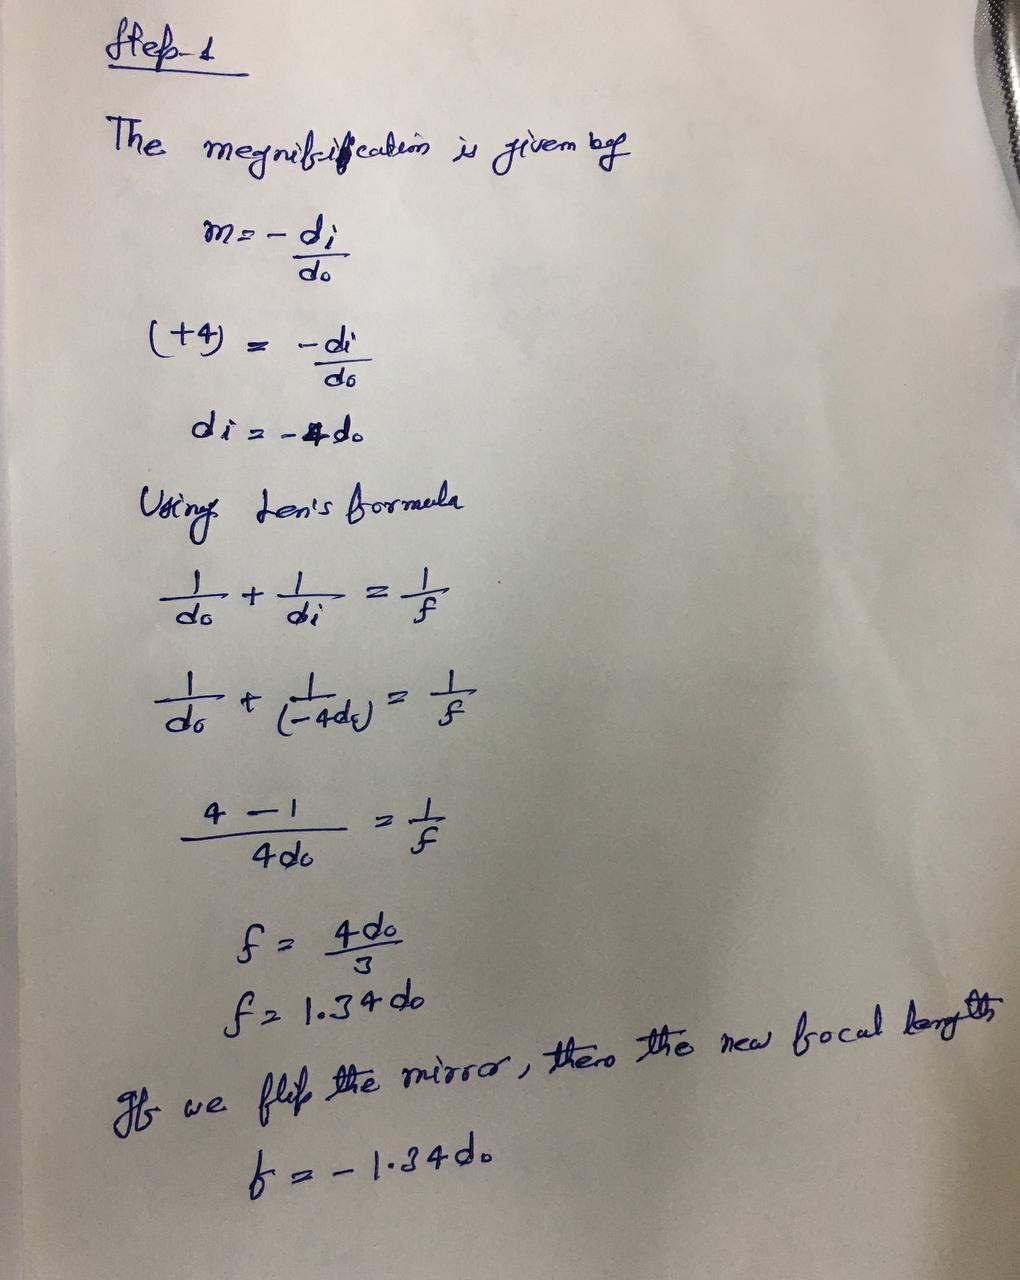 Step-1
The megnification is given by
m = - di/do
(+4) = -di/do
di = -4do
Using Len's formula
1/do + 1/di = 1/f
1/do + 1/(-4do) = 1/f
4 - 1/4do = 1/f
f = 4do/3
f = 1.34 do
If we flip the mirror, then the new focal length
f = - 1.34 do